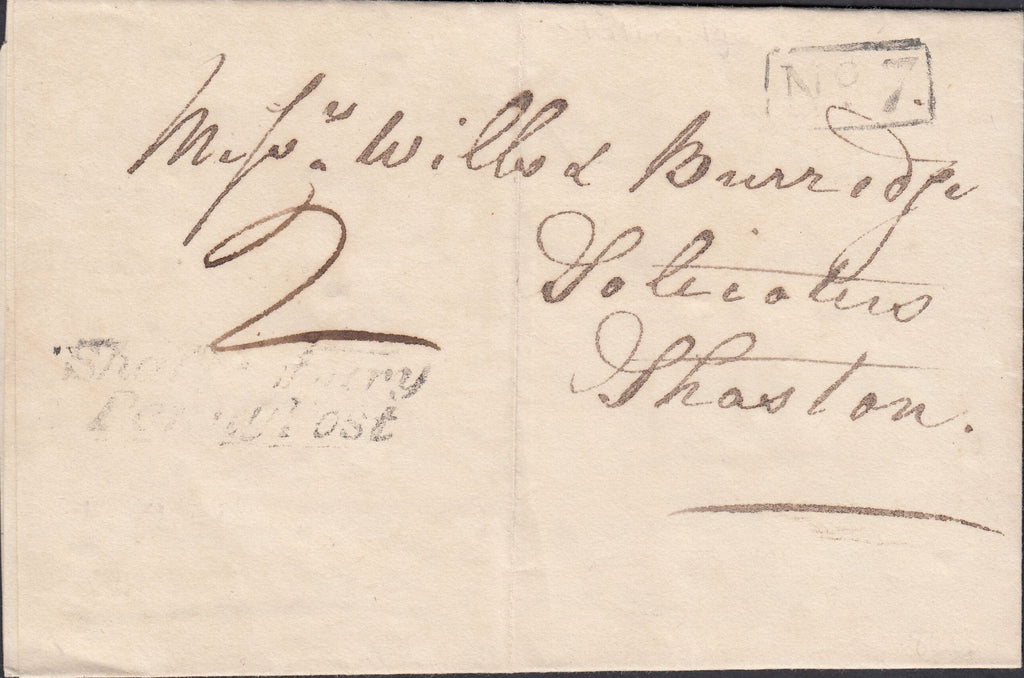 No. 7.
Messrs. Wills & Burridge
2
Soliciters
Shaston.
Shaftesbury
Penny Post